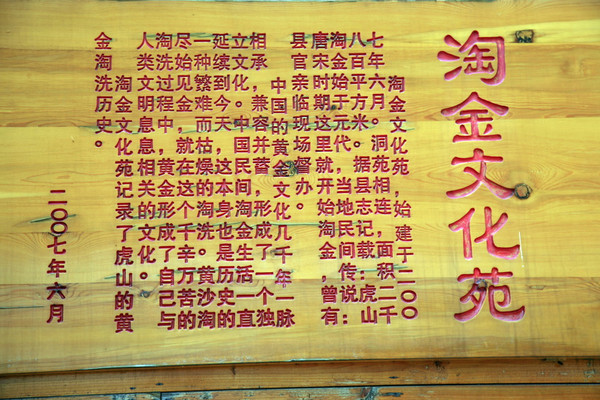 淘金文化苑
淘金文化苑始建于二〇〇
七年六月。洞苑相连，面积二千
八百平方米。据县志记载：虎山
淘金始于元代。当地民间传说：
唐宋时期这里就开始淘金，曾有
县官亲临现场督办。
中国的黄金文化几千年一脉
相承，兼容并蓄，形成了一个独
立文化。中国民间淘金生活一直
延续到今天，这本身也是历史的
一种繁难而枯燥的淘洗。黄沙淘
尽始见金，就在这个千辛万苦的
淘洗过程中，黄金形成了自己与
人类文明息息相关的文化。
淘金文化苑记录了虎山的黄
金淘洗历史。
二〇〇七年六月